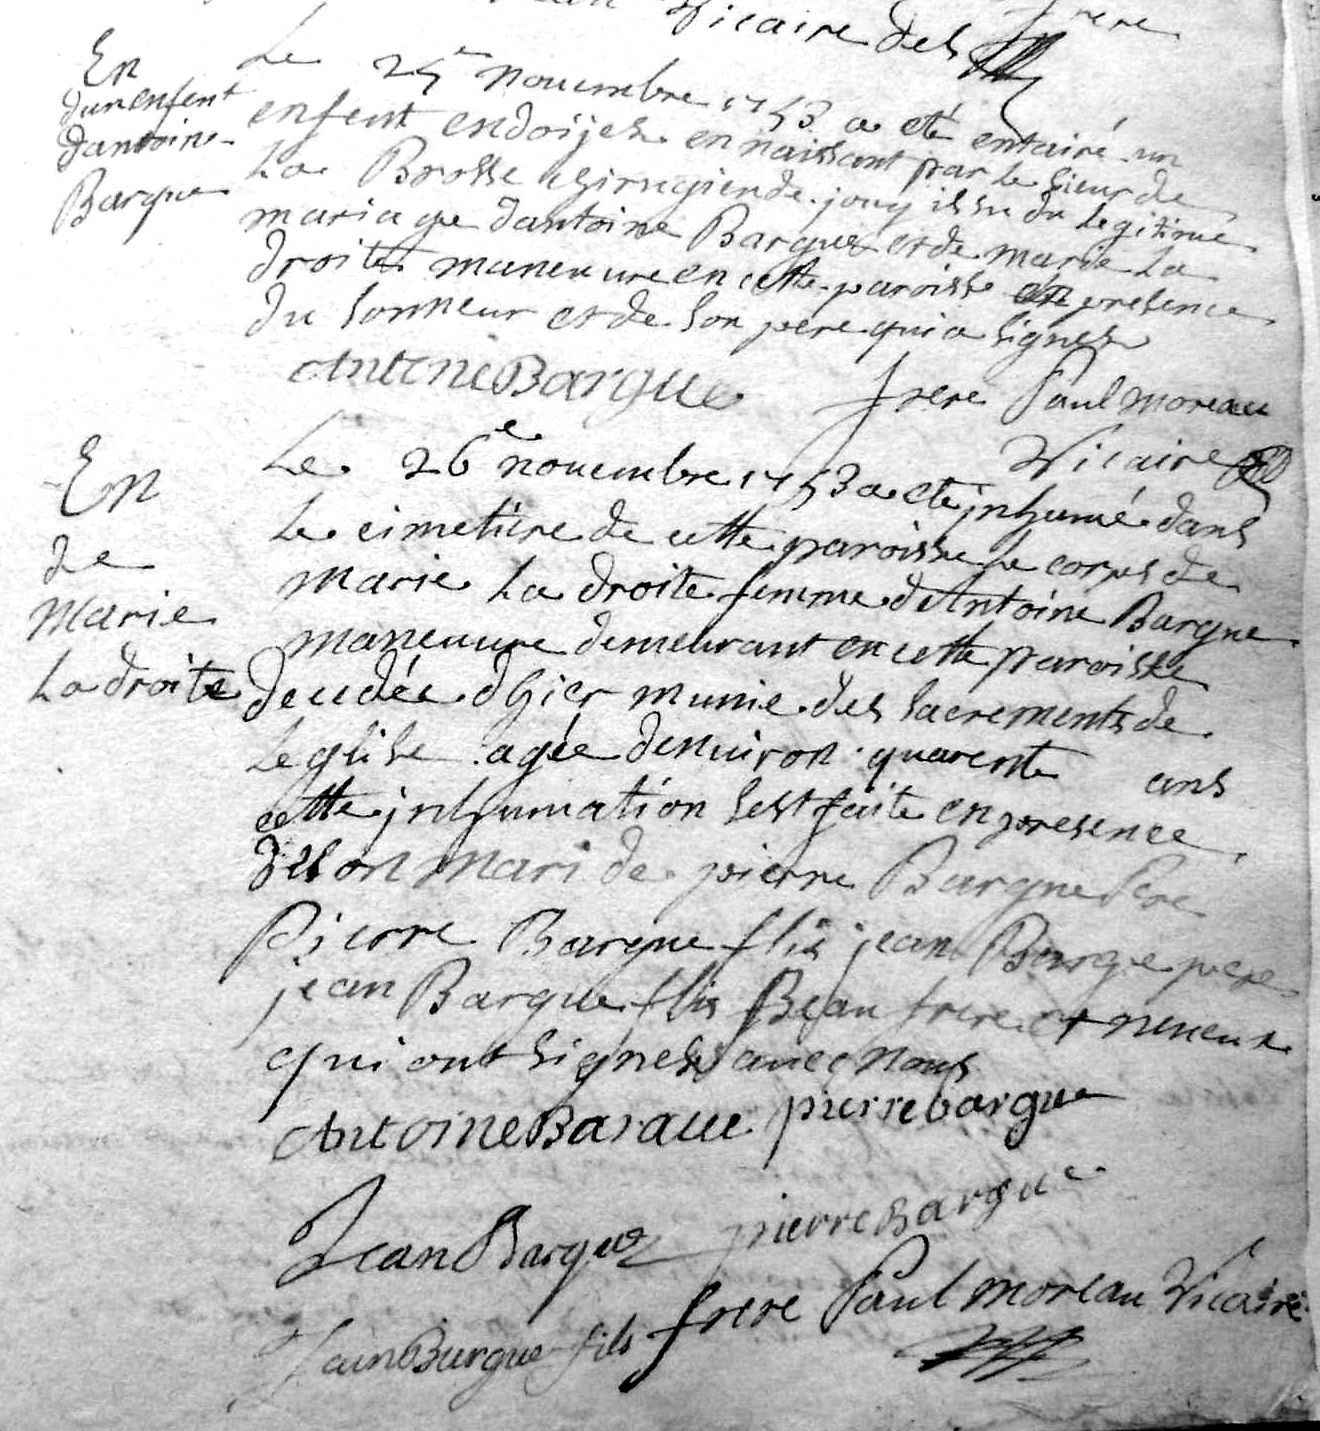 Vicaire des frere
En
dun enfent
dantoine
Bargue
Le 25e nouembre 1753 a eté entairé un
enfent endoijes en naissant par le sieur de
La Brosse chirugien de jouy issu du Legitime
mariage dantoine Bargue et de marie La
droite maneuure en cette paroisse en presence
du sonneur et de son pere qui a signes
Antoine Bargue frere Paul moreau
Vicaire
En
de
Marie
La droite
Le 26e nouembre 1753 a ete jnhumé dans
Le cimetiere de cette paroisse Le corps de
marie La droite femme dantoine Bargue
maneuure demeurant en cette paroisse
decedée dhier munie des sacrements de
Leglise agée denuiron quarente ans
cette jnhumation sest faite en presence
de son mari de pierre Bargue pere
Pierre Bargue fils jean Bargue pere
jean Bargue fils Beau frere et neueux
qui ont signes auec nous
Antoine Bargue pierre bargue
Jean Bargue pierre Bargue
Jean Bargue fils frere Paul moreau Vicaire